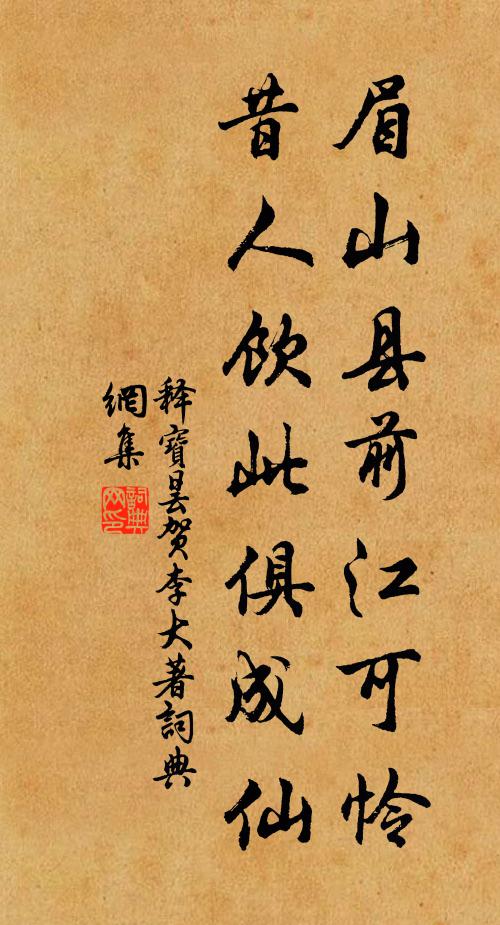 眉山县前江可怜
昔人饮此俱成仙
释寶昙贺李大著詞典
網集
詞典
网印